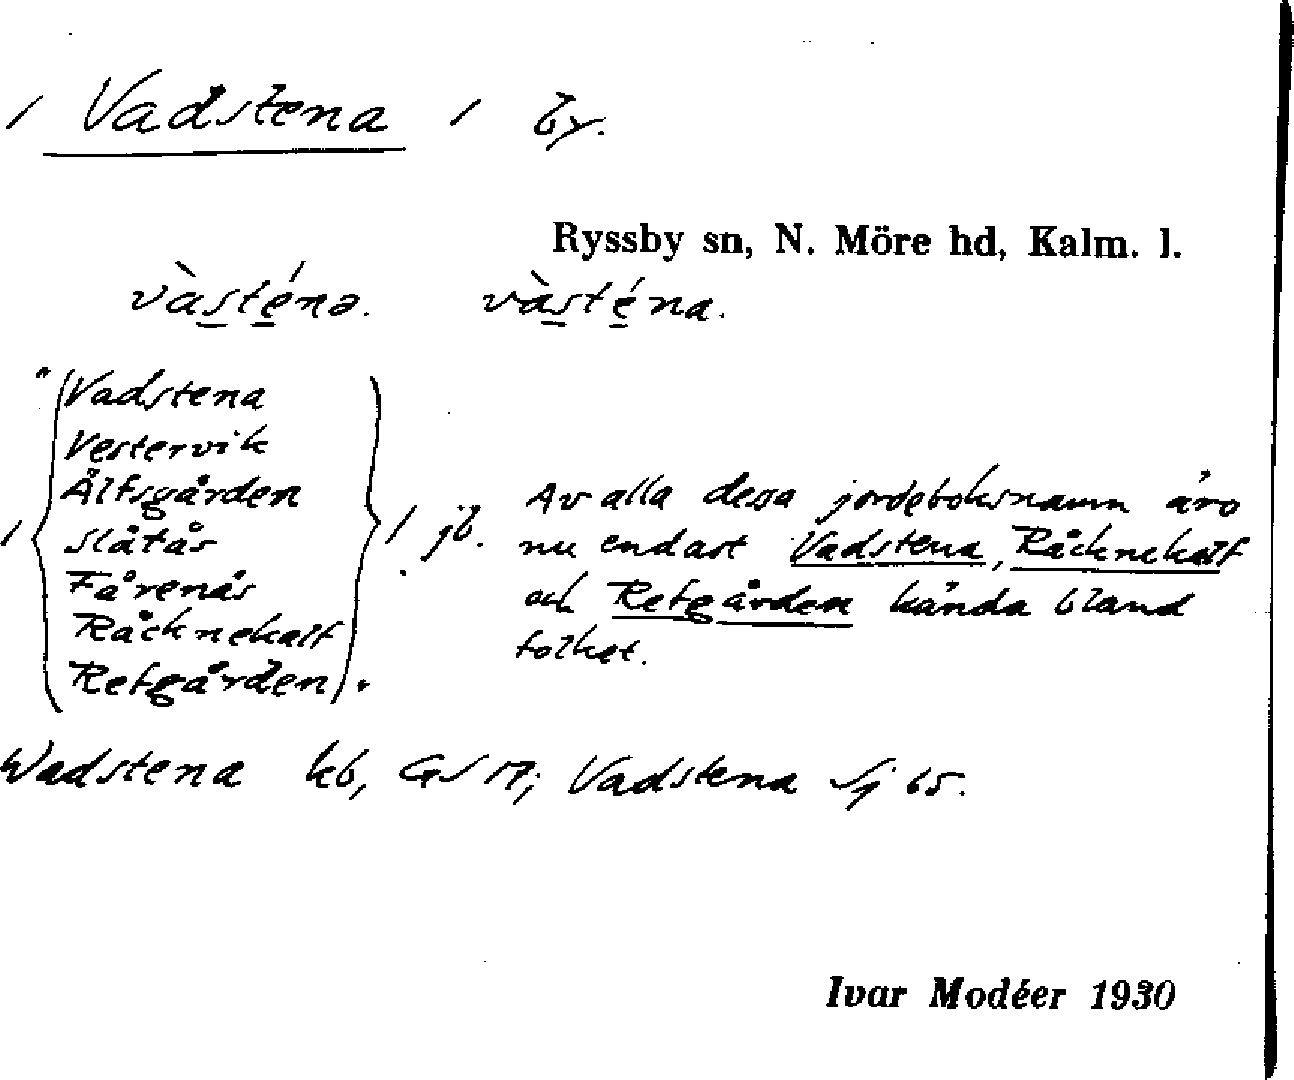 / Vadstena / by.
Ryssby sn, N. Möre hd, Kalm. l.
vàsténə. vàsténa.
"Vadstena
Vestervik
Älfsgården
Slätås
Fårenäs
Räcknekalf
Refgården".
/ / jb.
Av alla dessa jordeboksnamn äro
nu endast Vadstena, Räcknekalf
och Refgården kända bland
folket.
Wadstena kb, GS 17; Vadstena Sj 65.
Ivar Modéer 1930